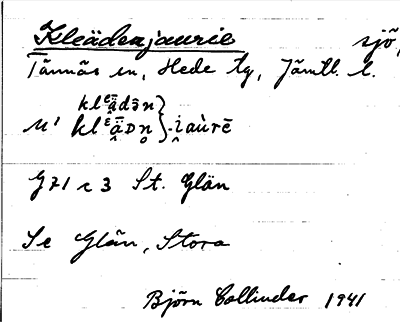 Kleädenjaurie sjö,
Tännäs sn, Hede tg, Jämtl. l.
G71 c 3 St. Glän
Se Glän, Stora
Björn Collinder 1941